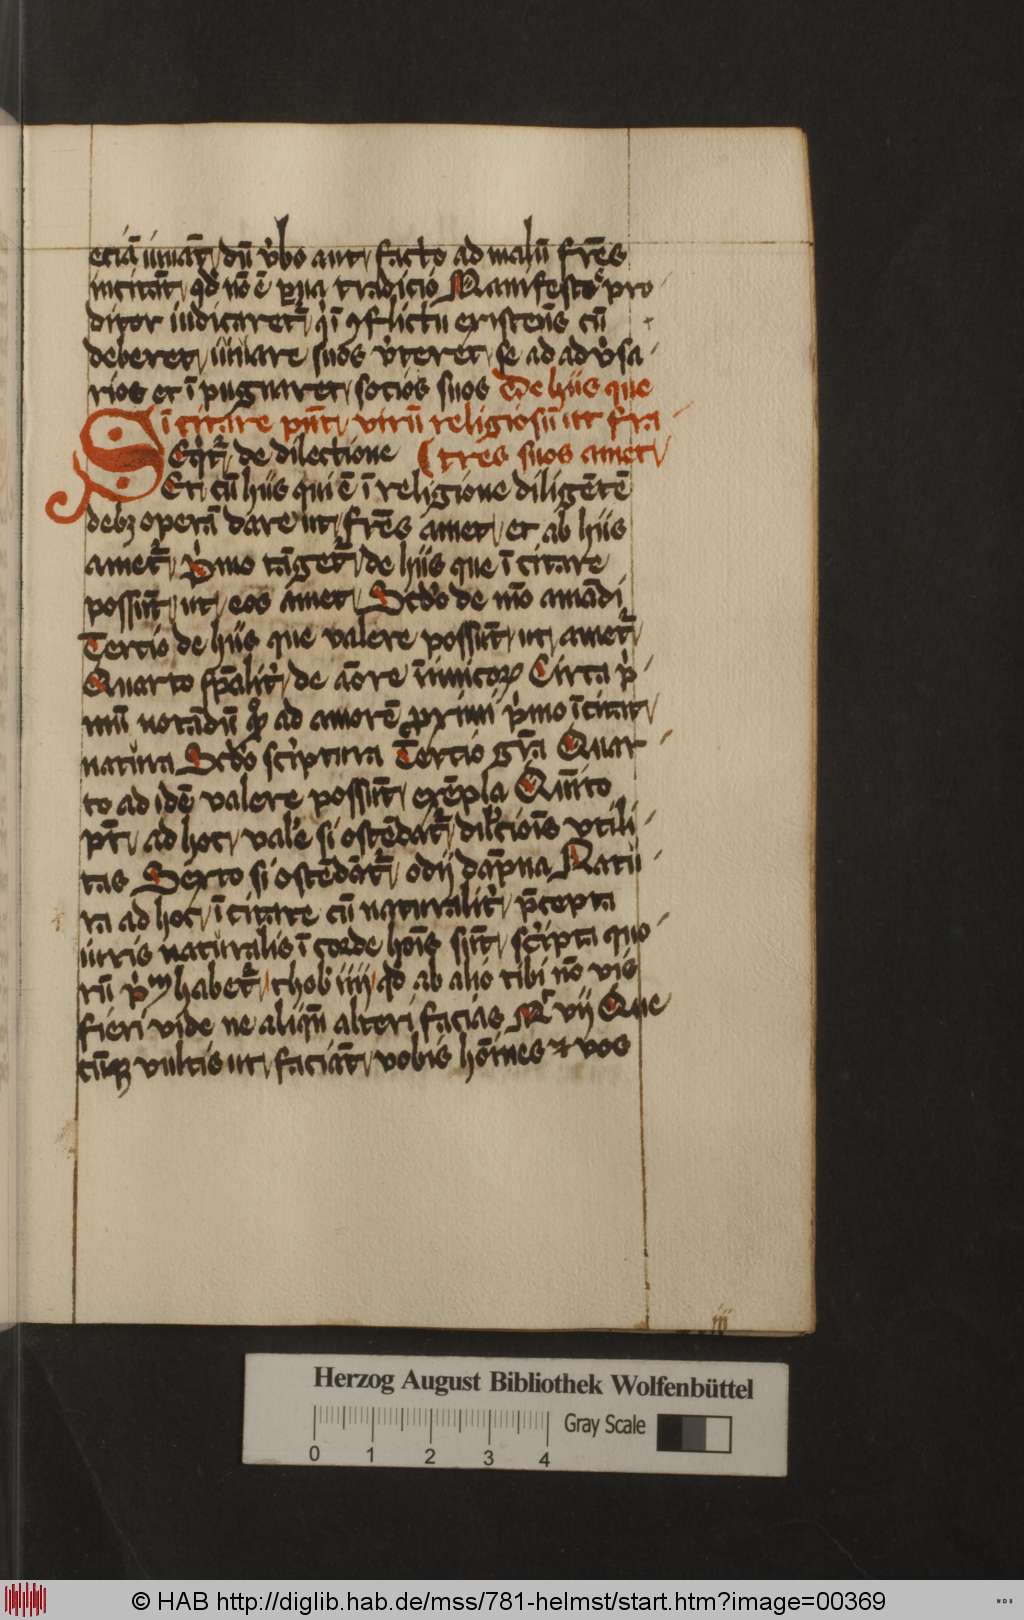 eciā iuuāt dū v̓bo aut facto ad malū fr̄es
incitāt qd̓ nō ē ꝑua tradicio Manifestꝰ pro
ditor iudicaretᷣ qͥ ī ꝯflictu existens cū
deberet iuuare suos v̓teret se ad adv̓sa
rios et īpugnaret socios suos De hiis que
īcitare pn̄t virū religiosū ut fra
tres suos amet
SEqͥtᷣ de dilectione
Et cū hiis qui ē ī religione diligētē
debꝫ operā dare ut fr̄es amet et ab hiis
ametᷣ pͥmo tāgetᷣ de hiis que īcitare
possūt ut eos amet Scd̓o de mō amādi
Tercio de hiis que valere possūt ut ametᷣ
Quarto sp̄alit̓ de aōre īimicoꝝ Circa pͥ
mū notādū ꝙ ad amorē primi pͥmo īcitat
natura Scd̓o scͥptura Tercio gr̄a Quar
to ad idē valere possūt exēpla Quīto
pt̄ ad hoc val̓e si ostēdatᷣ dil̓cioīs vtili
tas Sexto si ostēdātᷣ odij dāpna Natu
ra ad hoc īcitare cū naturalit̓ p̄cepta
iuris naturalis ī corde hoīs sūt scͥpta quo
rū pͥm habetᷣ thob̓ iiij qd̓ ab alio tibi nō vis
fieri vide ne aliqn̄ alteri facias Mͬ vij Que
cūqꝫ vultis ut faciāt vobis hōines ⁊ vos
iij
Herzog August Bibliothek Wolfenbüttel
Gray Scale
0 1 2 3 4
© HAB http://diglib.hab.de/mss/781-helmst/start.htm?image=00369